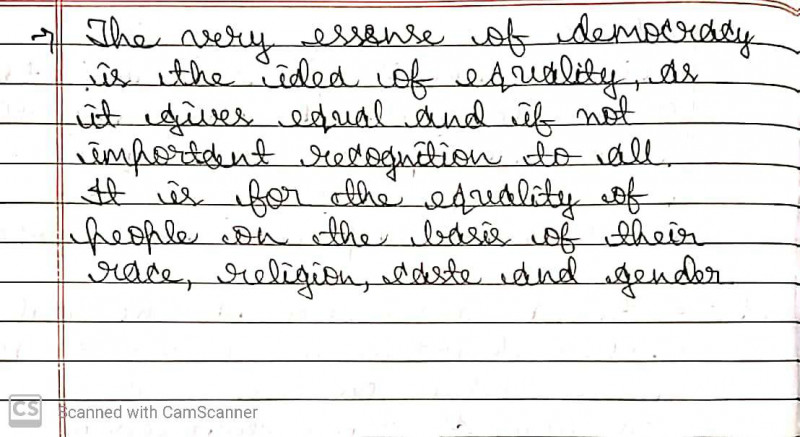 → The very essense of democracy
is the idea of equality, as
it gives equal and if not
important recognition to all.
It is for the equality of
people on the basis of their
race, religion, caste and gender
CS Scanned with CamScanner